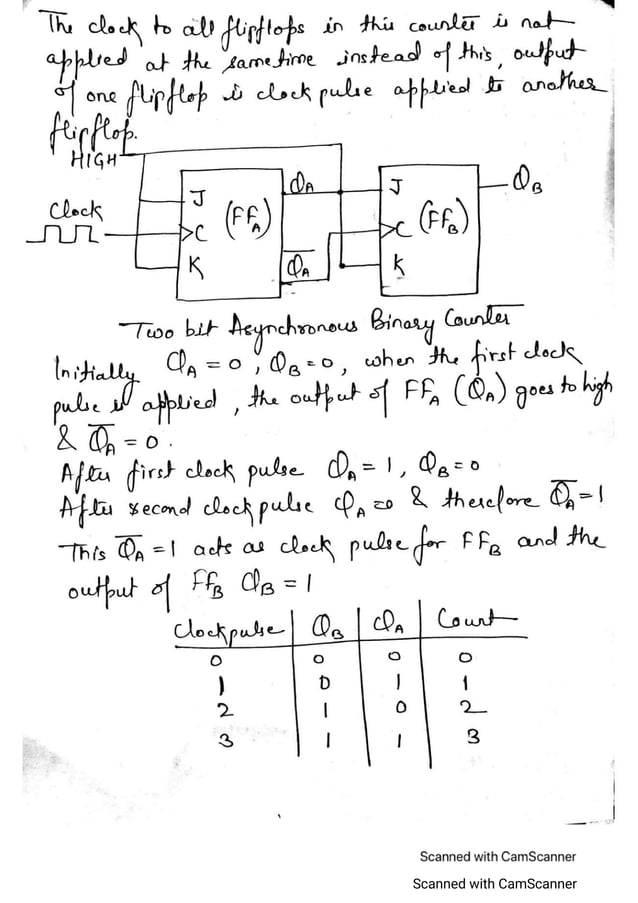 The clock to all flipflops in this counter is not
applied at the same time instead of this, output
of one flipflop is clock pulse applied to another
flipflop.
HIGH
Clock
J
C
K
(FF_A)
Q_A
Q̅_A
J
C
K
(FF_B)
Q_B
Two bit Asynchronous Binary Counter
Initially Q_A = 0, Q_B = 0, when the first clock
pulse is applied, the output of FF_A (Q_A) goes to high
& Q̅_A = 0.
After first clock pulse Q_A = 1, Q_B = 0
After second clock pulse Q_A = 0 & therefore Q̅_A = 1
This Q̅_A = 1 acts as clock pulse for FF_B and the
output of FF_B Q_B = 1
Clock pulse | Q_B | Q_A | Count
0 0 0 0
1 0 1 1
2 1 0 2
3 1 1 3
Scanned with CamScanner
Scanned with CamScanner